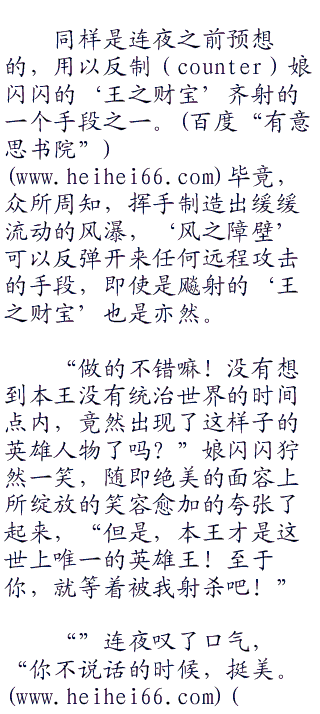 同样是连夜之前预想
的，用以反制（counter）娘
闪闪的‘王之财宝’齐射的
一个手段之一。(百度“有意
思书院”)
(www.heihei66.com)毕竟，
众所周知，挥手制造出缓缓
流动的风瀑，‘风之障壁’
可以反弹开来任何远程攻击
的手段，即使是飚射的‘王
之财宝’也是亦然。
“做的不错嘛！没有想
到本王没有统治世界的时间
点内，竟然出现了这样子的
英雄人物了吗？”娘闪闪狞
然一笑，随即绝美的面容上
所绽放的笑容愈加的夸张了
起来，“但是，本王才是这
世上唯一的英雄王！至于
你，就等着被我射杀吧！”
“”连夜叹了口气，
“你不说话的时候，挺美。
(www.heihei66.com)(